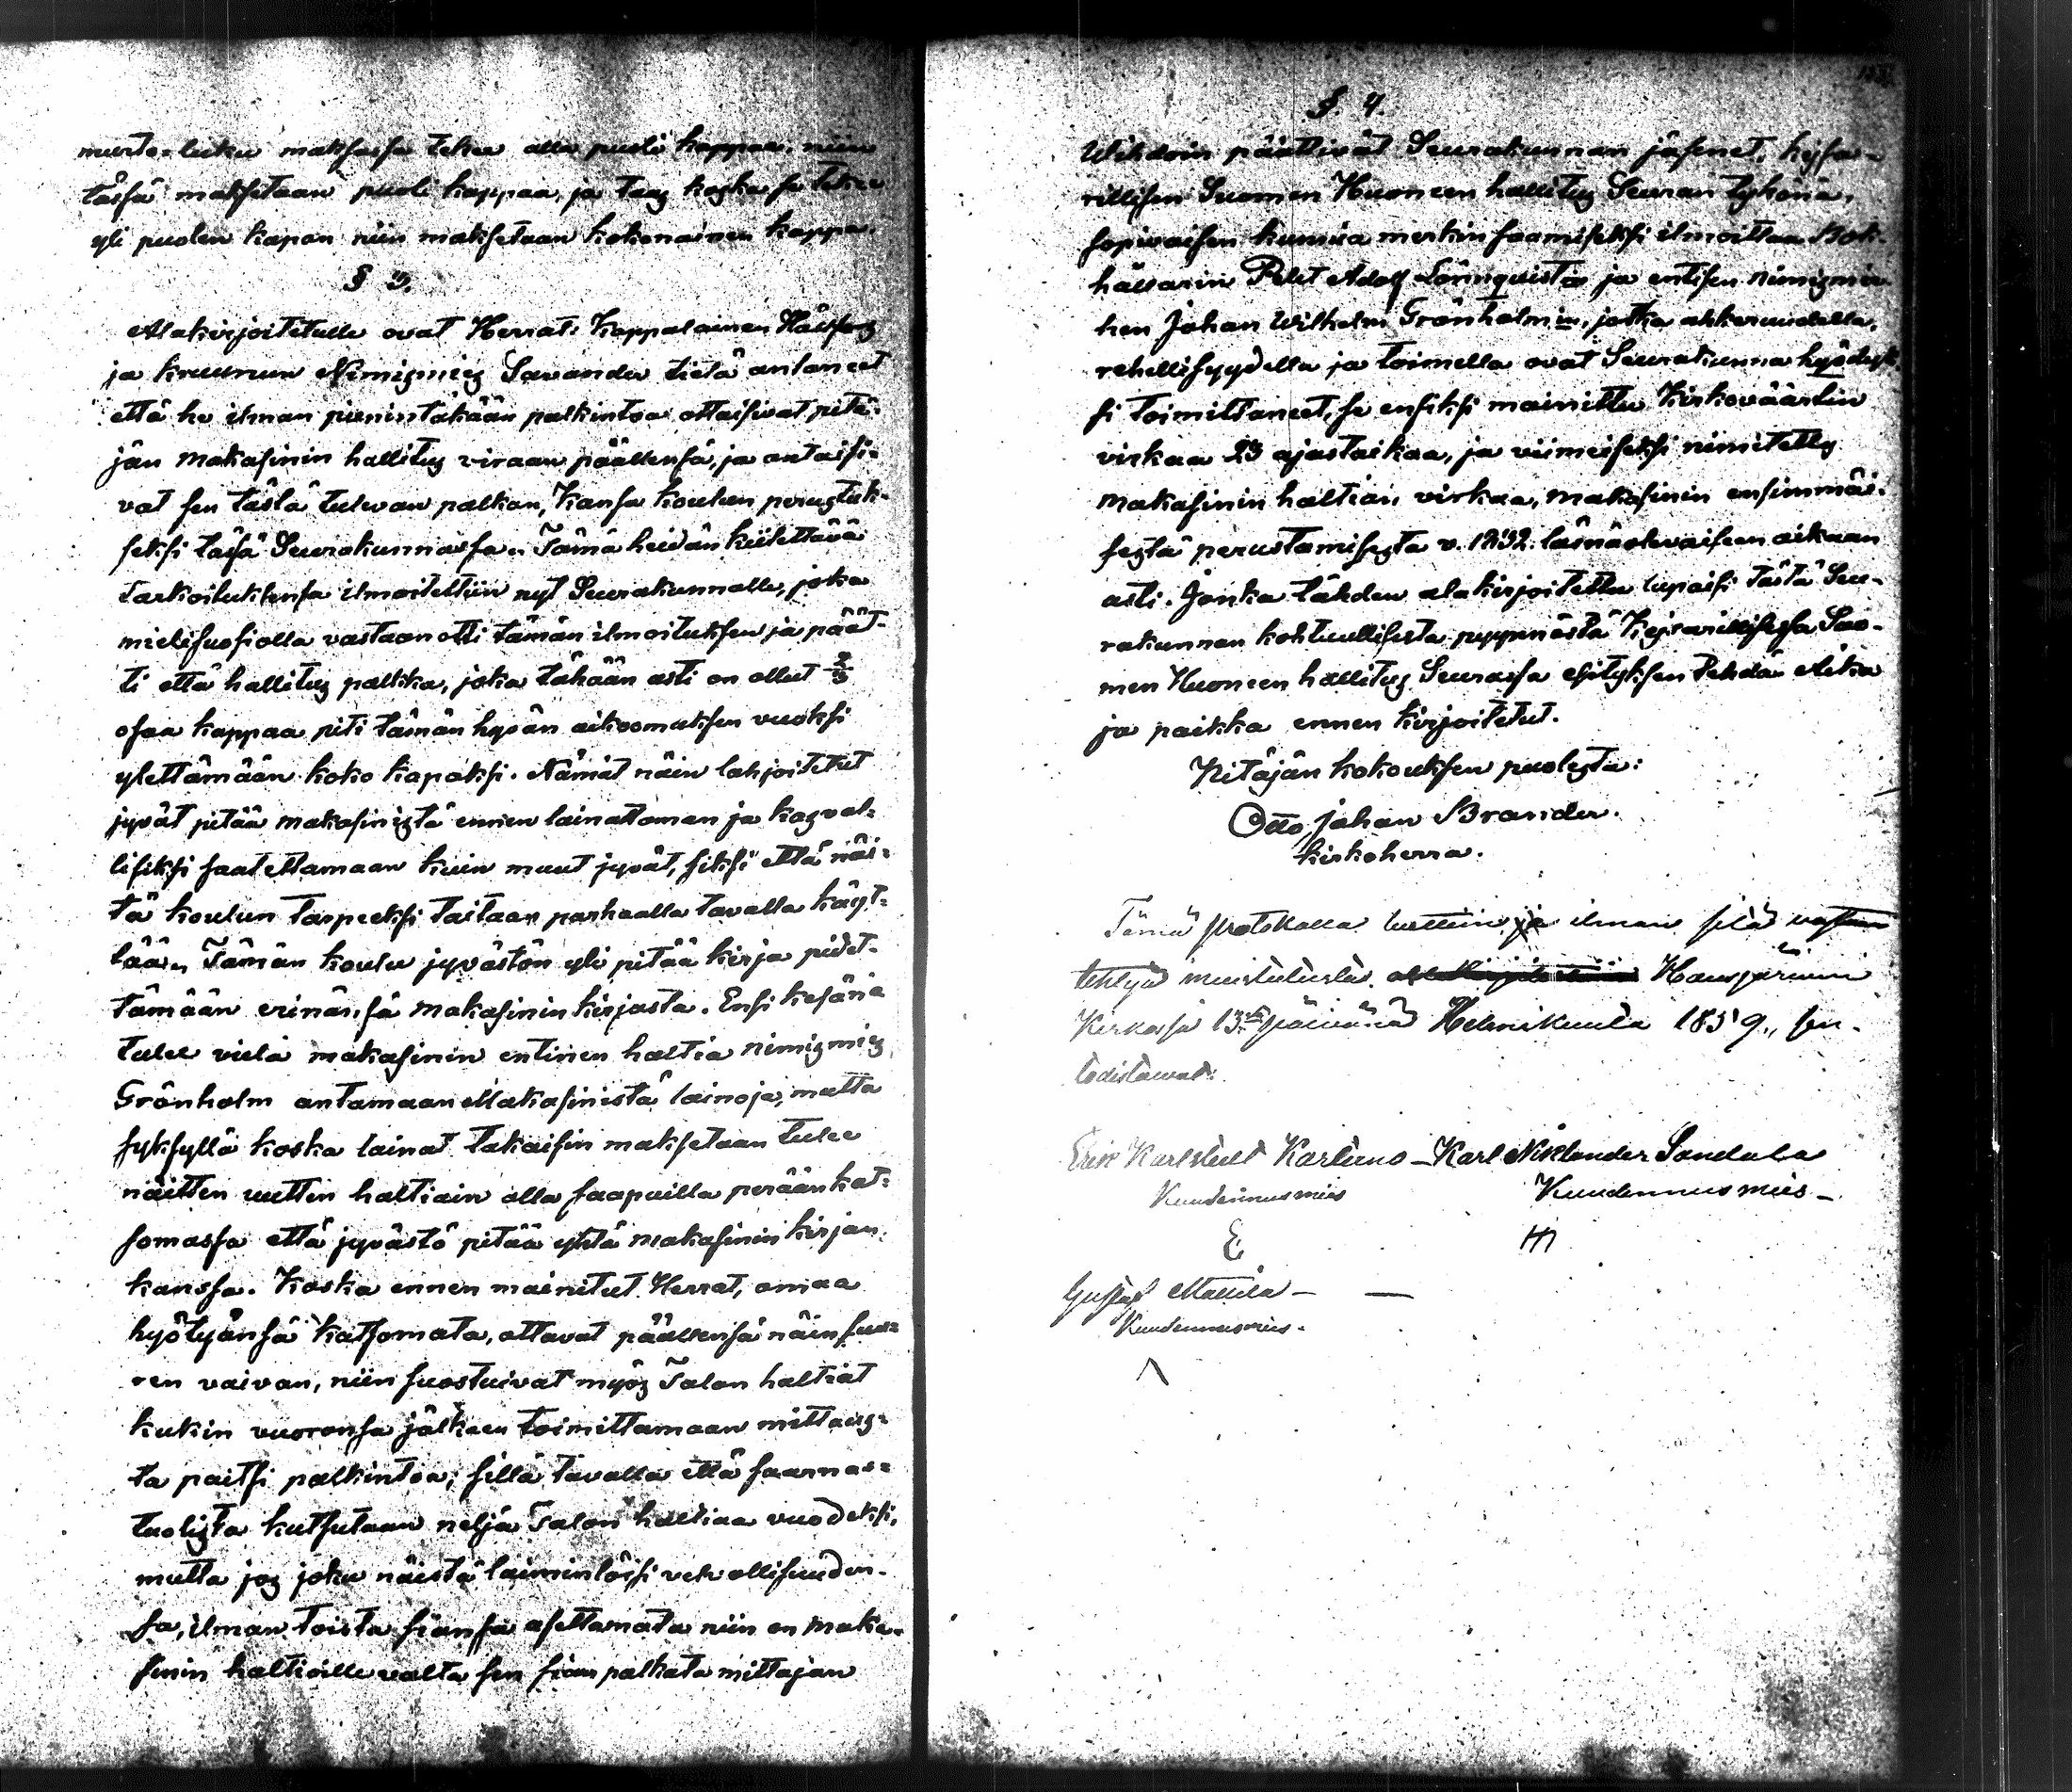 murto-luku maksassa tekee alle puoli kappaa, niin
tässä maksetaan puoli kappaa, ja taas koska se tekee
yli puolen kapan niin maksetaan kokonainen kappa.
§ 3.
Alakirjoitetulle ovat Herrat: Kappalainen
ja kruunun Nimismies Savander tietä antaneet
että he ilman pienintäkään palkintoa ottaisivat pitä-
jän makasinin hallitus viraan päällensä, ja antaisi-
vat sen tästä tulevan palkan, Kansa koulun perustuk-
seksi tässä Seurakunnassa. Tämä heidän kiitettävä
Tarkoituksensa ilmoitettiin nyt Seurakunnalle, joka
mielisuosiolla vastaanotti tämän ilmoituksen ja päät-
ti että hallitus palkka, joka tähään asti on ollut 2/3
osaa kappaa piti tämän hyvän aikoomuksen vuoksi
ylettämään koko kapaksi. Nämät näin lahjoitetut
jyvät pitää makasinista ennen lainattoman ja kasval-
lisiksi saatettamaan kuin muut jyvät, siksi että näi-
tä koulun tarpeeksi taitaan parhaalla tavalla käyt-
tää. Tämän koulu jyvästön yli pitää kirja pidet-
tämään erinänsä makasinin kirjasta. Ensi kesänä
tulee vielä makasinin entinen haltia nimismies
Grönholm antamaan Makasinista lainoja, mutta
syksyllä koska lainat takaisin maksetaan tulee
näitten uutten haltiain olla saapuilla perään kat-
somassa että jyvästö pitää yhtä makasinin kirjan
kanssa. Koska ennen mainitut Herrat, omaa
hyötyänsä katsomata, ottavat päällensä näin suu-
ren vaivan, niin suostuivat myös Talon haltiat
kukin vuoronsa jälkeen toimittamaan mittaus-
ta paitsi palkintoa; sillä tavalla että saarnas-
tuolista kutsutaan neljä Talon haltiaa vuodeksi,
mutta jos joku näistä laiminlöisi velvollisuuden-
sa, ilman toista siansa asettamata niin on maka-
sinin haltioille valta sen sian palkata mittajan
§. 4.
Wihdoin päättivät Seurakunnan jäsenet, kejsa-
rillisen Suomen Huoneen hallitus Seuran tykönä,
sopivaisen kunnia merkin saamiseksi ilmoittaa Bok-
hållarin Pehr Adolf Lönnqvistin ja entisen nimismie-
hen Johan Wilhelm Grönholmin, jotka ahkeruudella,
rehellisyydellä ja toimella ovat Seurakunna hyödyk-
si toimittaneet, se ensiksi mainittu Kirkoväärtin
virkaa 23 ajastaikaa, ja viimeiseksi nimitetty
makasinin haltian virkaa, makasinin ensimmäi-
sestä perustamisesta v. 1832. läsnäolevaiseen aikaan
asti. Jonka tähden alakirjoitettu lupaisi tästä Seu-
rakunnan kohtuullisesta pyynnöstä Kejsarillisessa Suo-
men Huoneen hallitus Seurassa esityksen tehdä Aika
ja paikka ennen kirjoitetut.
Pitäjän kokouksen puolesta:
Otto Johan Brander.
kirkoherra.
Tämä protokolla luettiin ja ilman sitä vastaan
tehtyä muistutusta. Hausjärven
Kirkossa 13. päivänä Helmikuuta 1859., sen-
todistavat:
Erik Karlstedt Karluno – Karl Niklander Sandala
Kuudennusmies Kuudennusmies –
E
Gustaf Mattila –
Kuudennusmies.